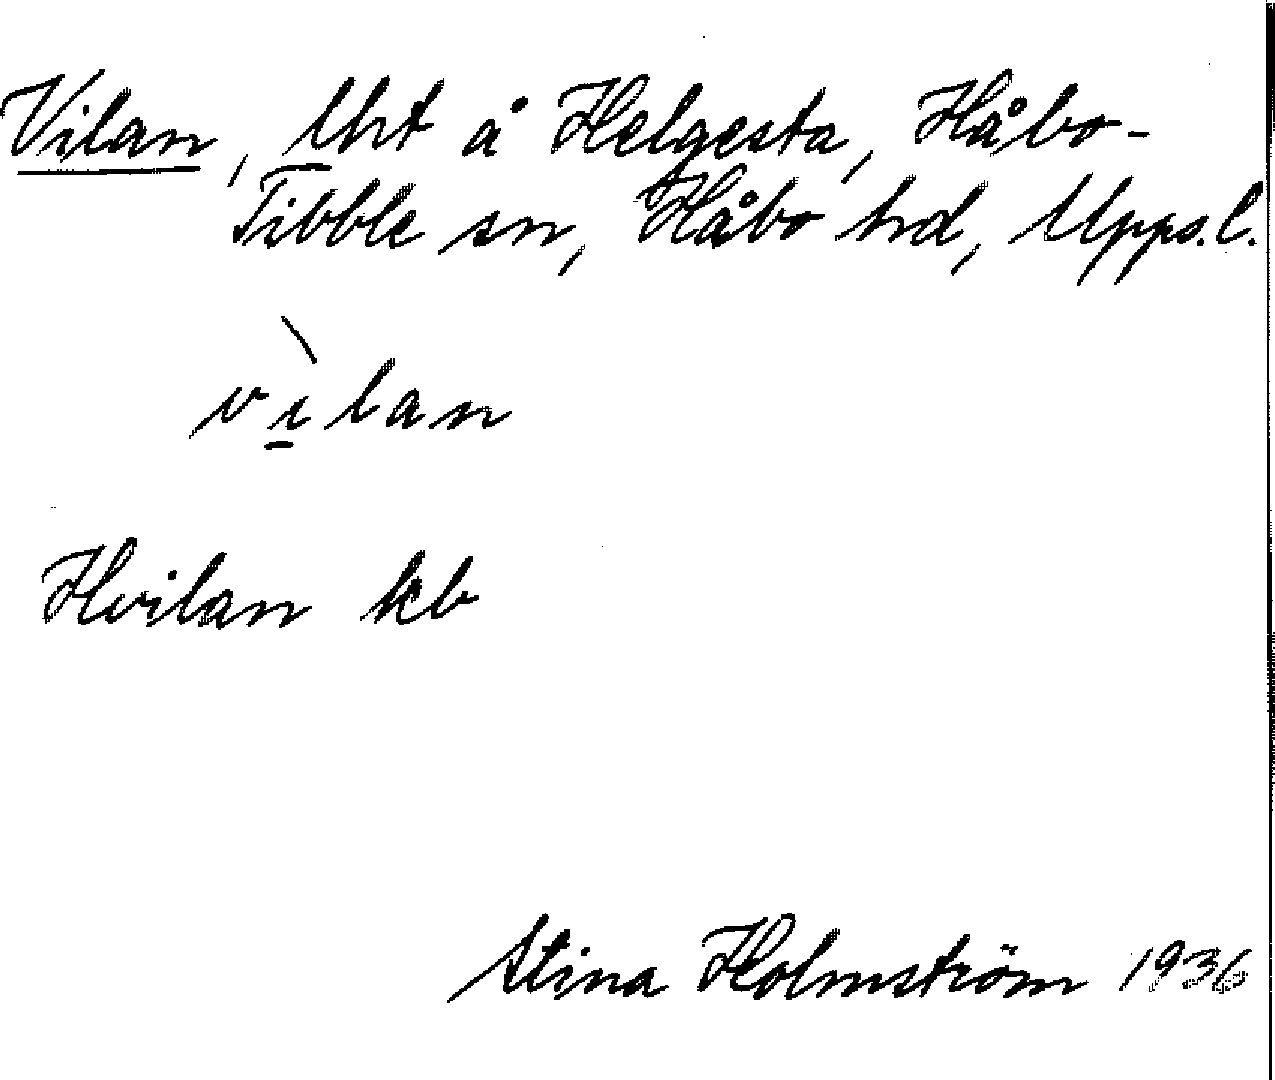 Vilan, lht å Helgesta, Håbo-
Tibble sn, Håbo hd, Upps. l.
vìlan
Hvilan kb
Stina Holmström 1936